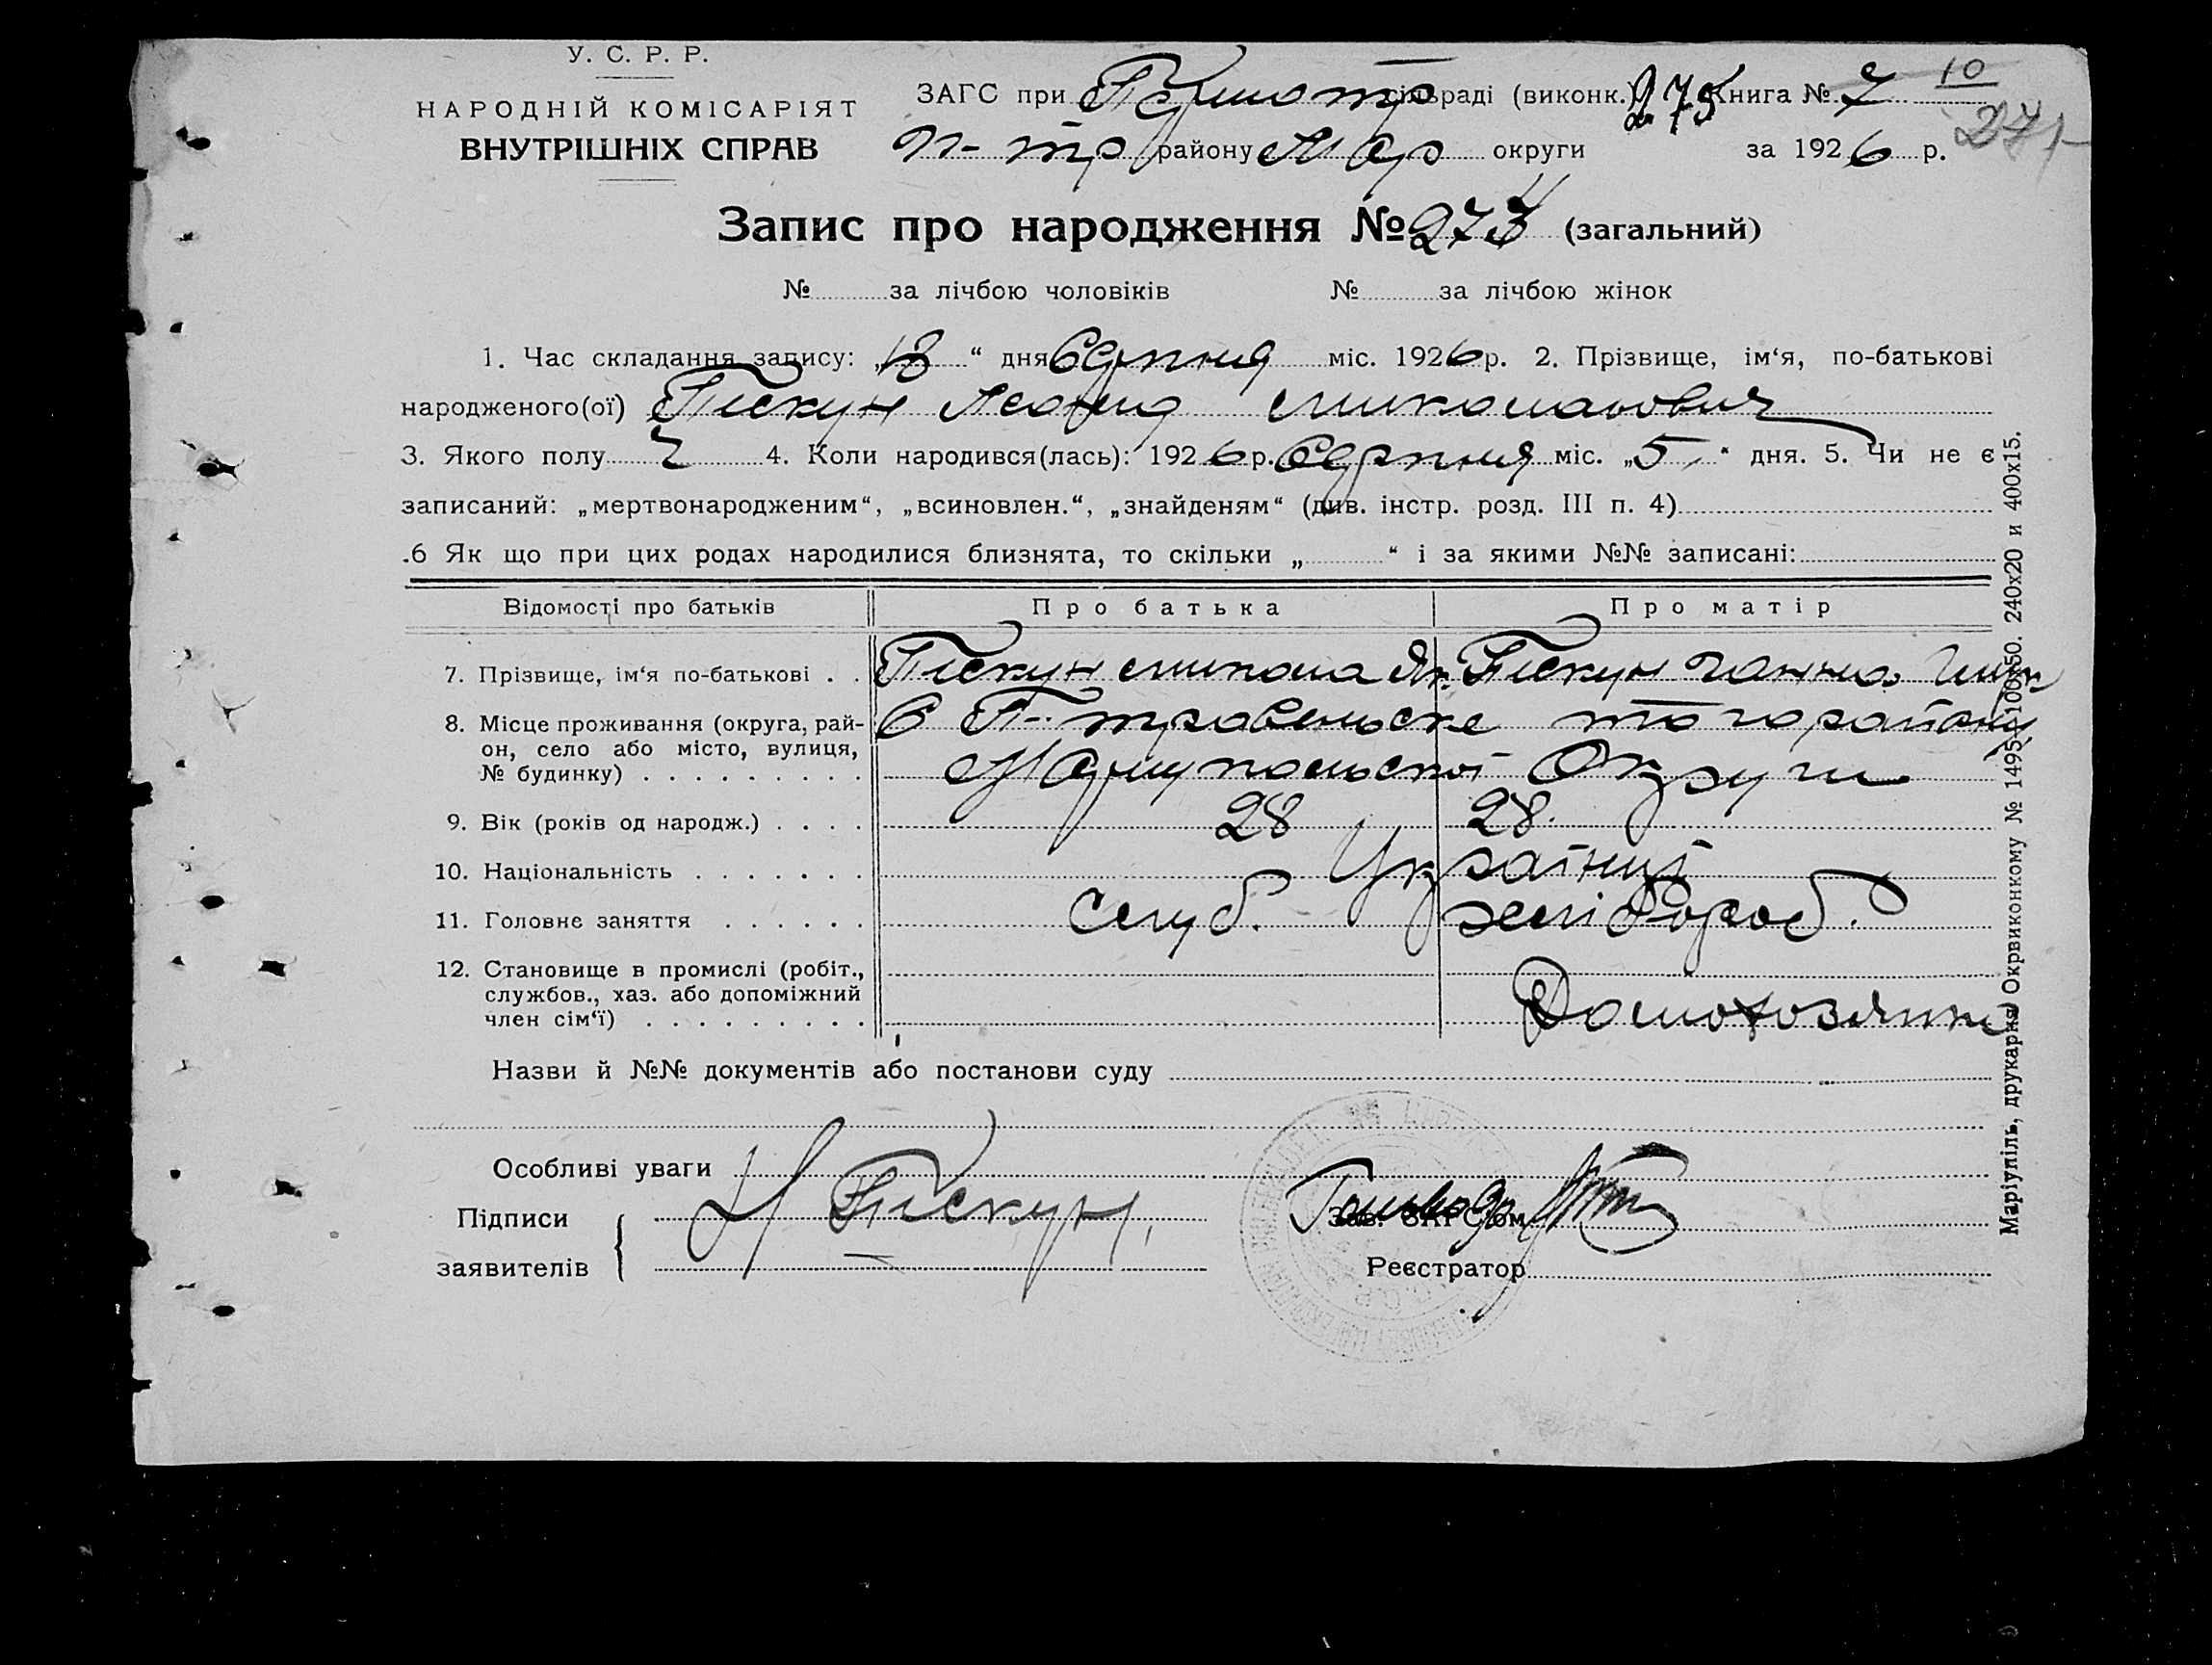 У. С. Р. Р.
НАРОДНІЙ КОМІСАРІЯТ
ВНУТРІШНІХ СПРАВ
ЗАГС при Першотр сільраді (виконк.) 275 Книга № 7 10
П-тр району Мар округи за 1926 р. 271
Запис про народження № 273 (загальний)
№ за лічбою чоловіків № за лічбою жінок
1. Час складання запису: „18“ дня Серпня міс. 1926 р. 2. Прізвище, ім‘я, по-батькові
народженого(ої) Пискун Леонид Миколаьович
3. Якого полу Ч 4. Коли народився(лась): 1926 р. Серпня міс. „5“ дня. 5. Чи не є
записаний: „мертвонародженим“, „всиновлен.“, „знайденям“ (див. інстр. розд. III п. 4)
.6 Як що при цих родах народилися близнята, то скільки „ “ і за якими №№ записані:
Відомості про батьків Про батька Про матір
7. Прізвище, ім‘я по-батькові . . Пискун Микола Як. Пискун Ганна
8. Місце проживання (округа, рай- С П-травеньске того району
он, село або місто, вулиця,
№ будинку) . . . . . . . . . Маріупольскої Округи
9. Вік (років од народж.) . . . . 28 28.
10. Національність . . . . . . . Українці
11. Головне заняття . . . . . . Служб. хліборос.
12. Становище в промислі (робіт.,
службов., хаз. або допоміжний
член сім‘ї) . . . . . . . . . Домохозяика
Назви й №№ документів або постанови суду
Особливі уваги
Підписи Н Пискун Зав. ЗАГС‘ом
заявителів Реєстратор
Маріупіль, друкарня Окрвиконкому № 1495 100х50. 240х20 и 400х15.